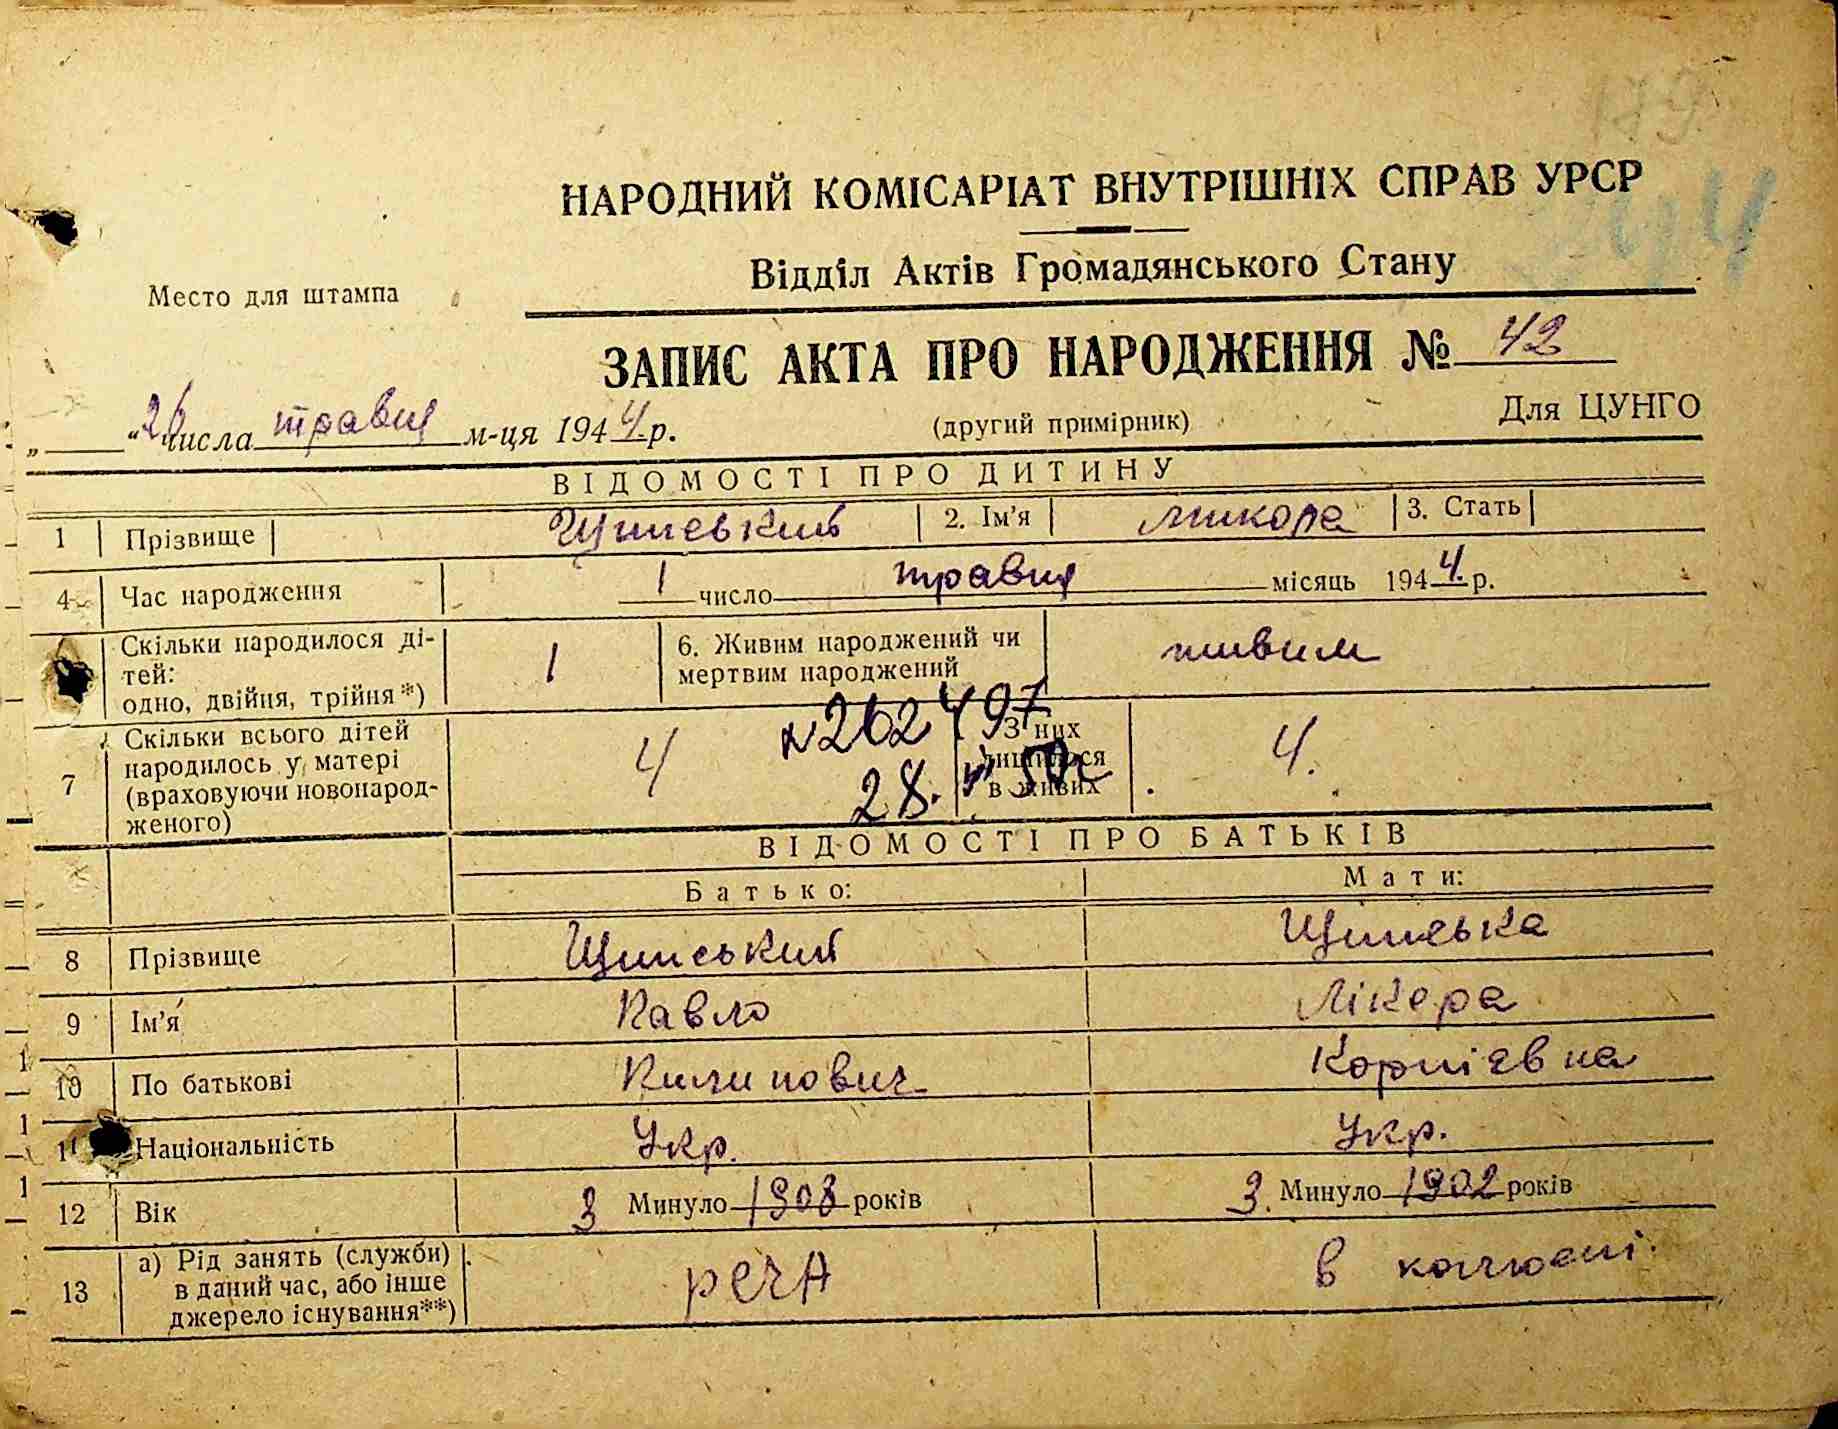 НАРОДНИЙ КОМІСАРІАТ ВНУТРІШНІХ СПРАВ УРСР
Відділ Актів Громадянського Стану
Место для штампа
ЗАПИС АКТА ПРО НАРОДЖЕННЯ № 42
„ “ 26 числа травня м-ця 1944 р.
(другий примірник)
Для ЦУНГО
ВІДОМОСТІ ПРО ДИТИНУ
1 Прізвище 2. Ім'я Микола 3. Стать
4 Час народження 1 число травня місяць 1944 р.
Скільки народилося ді-
тей:
одно, двійня, трійня*)
1
6. Живим народжений чи
мертвим народжений
живим
7
Скільки всього дітей
народилось у матері
(враховуючи новонарод-
женого)
4
N262497
28. V 50р
З них
лишилося
в живих
4.
ВІДОМОСТІ ПРО БАТЬКІВ
Батько: Мати:
8 Прізвище
9 Ім'я Павло Лікера
10 По батькові Корніевна
11 Національність Укр. Укр.
12 Вік З Минуло 1903 років З. Минуло 1902 років
13
а) Рід занять (служби)
в даний час, або інше
джерело існування**)
РСЧА в колгоспі